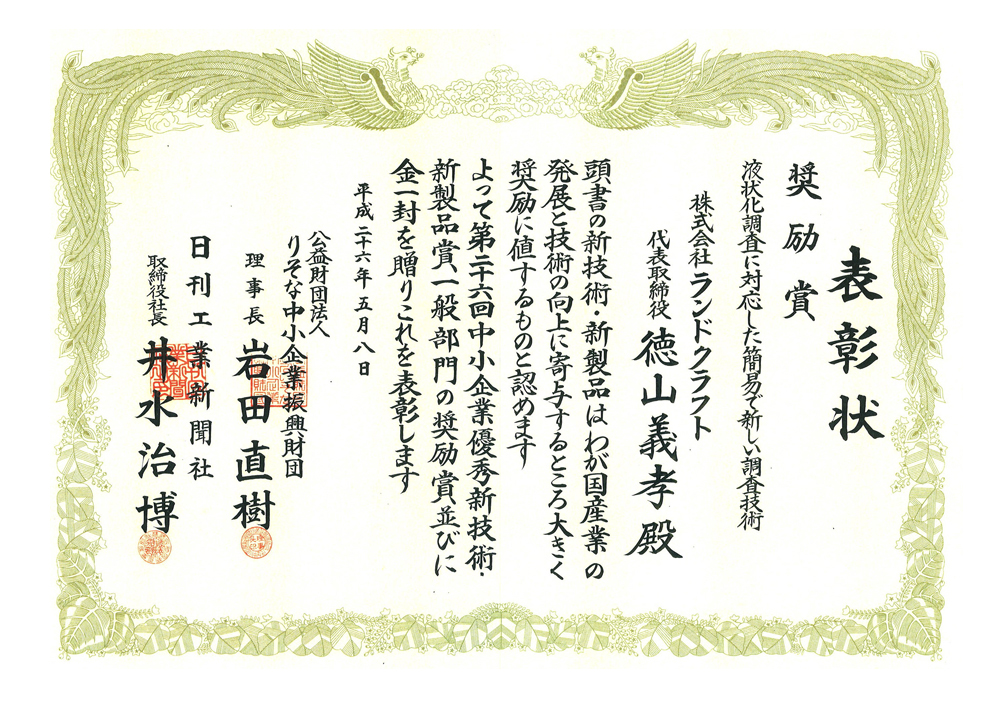 表彰状
奨励賞
液状化調査に対応した簡易で新しい調査技術
株式会社ランドクラフト
代表取締役 徳山義孝殿
頭書の新技術・新製品はわが国産業の
発展と技術の向上に寄与するところ大きく
奨励に値するものと認めます
よって第二十六回中小企業優秀新技術・
新製品賞、一般部門の奨励賞並びに
金一封を贈りこれを表彰します
平成二十六年五月八日
公益財団法人
りそな中小企業振興財団
理事長 岩田直樹
日刊工業新聞社
取締役社長 井水治博